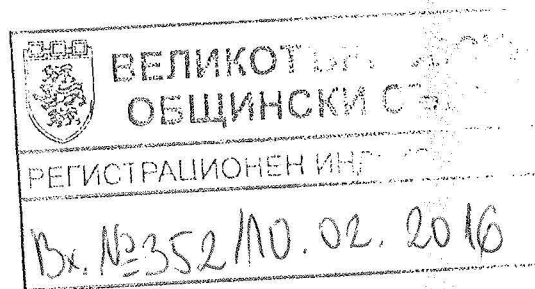 ВЕЛИКОТ
ОБЩИНСКИ
РЕГИСТРАЦИОНЕН
Вх. №352/10.02.2016